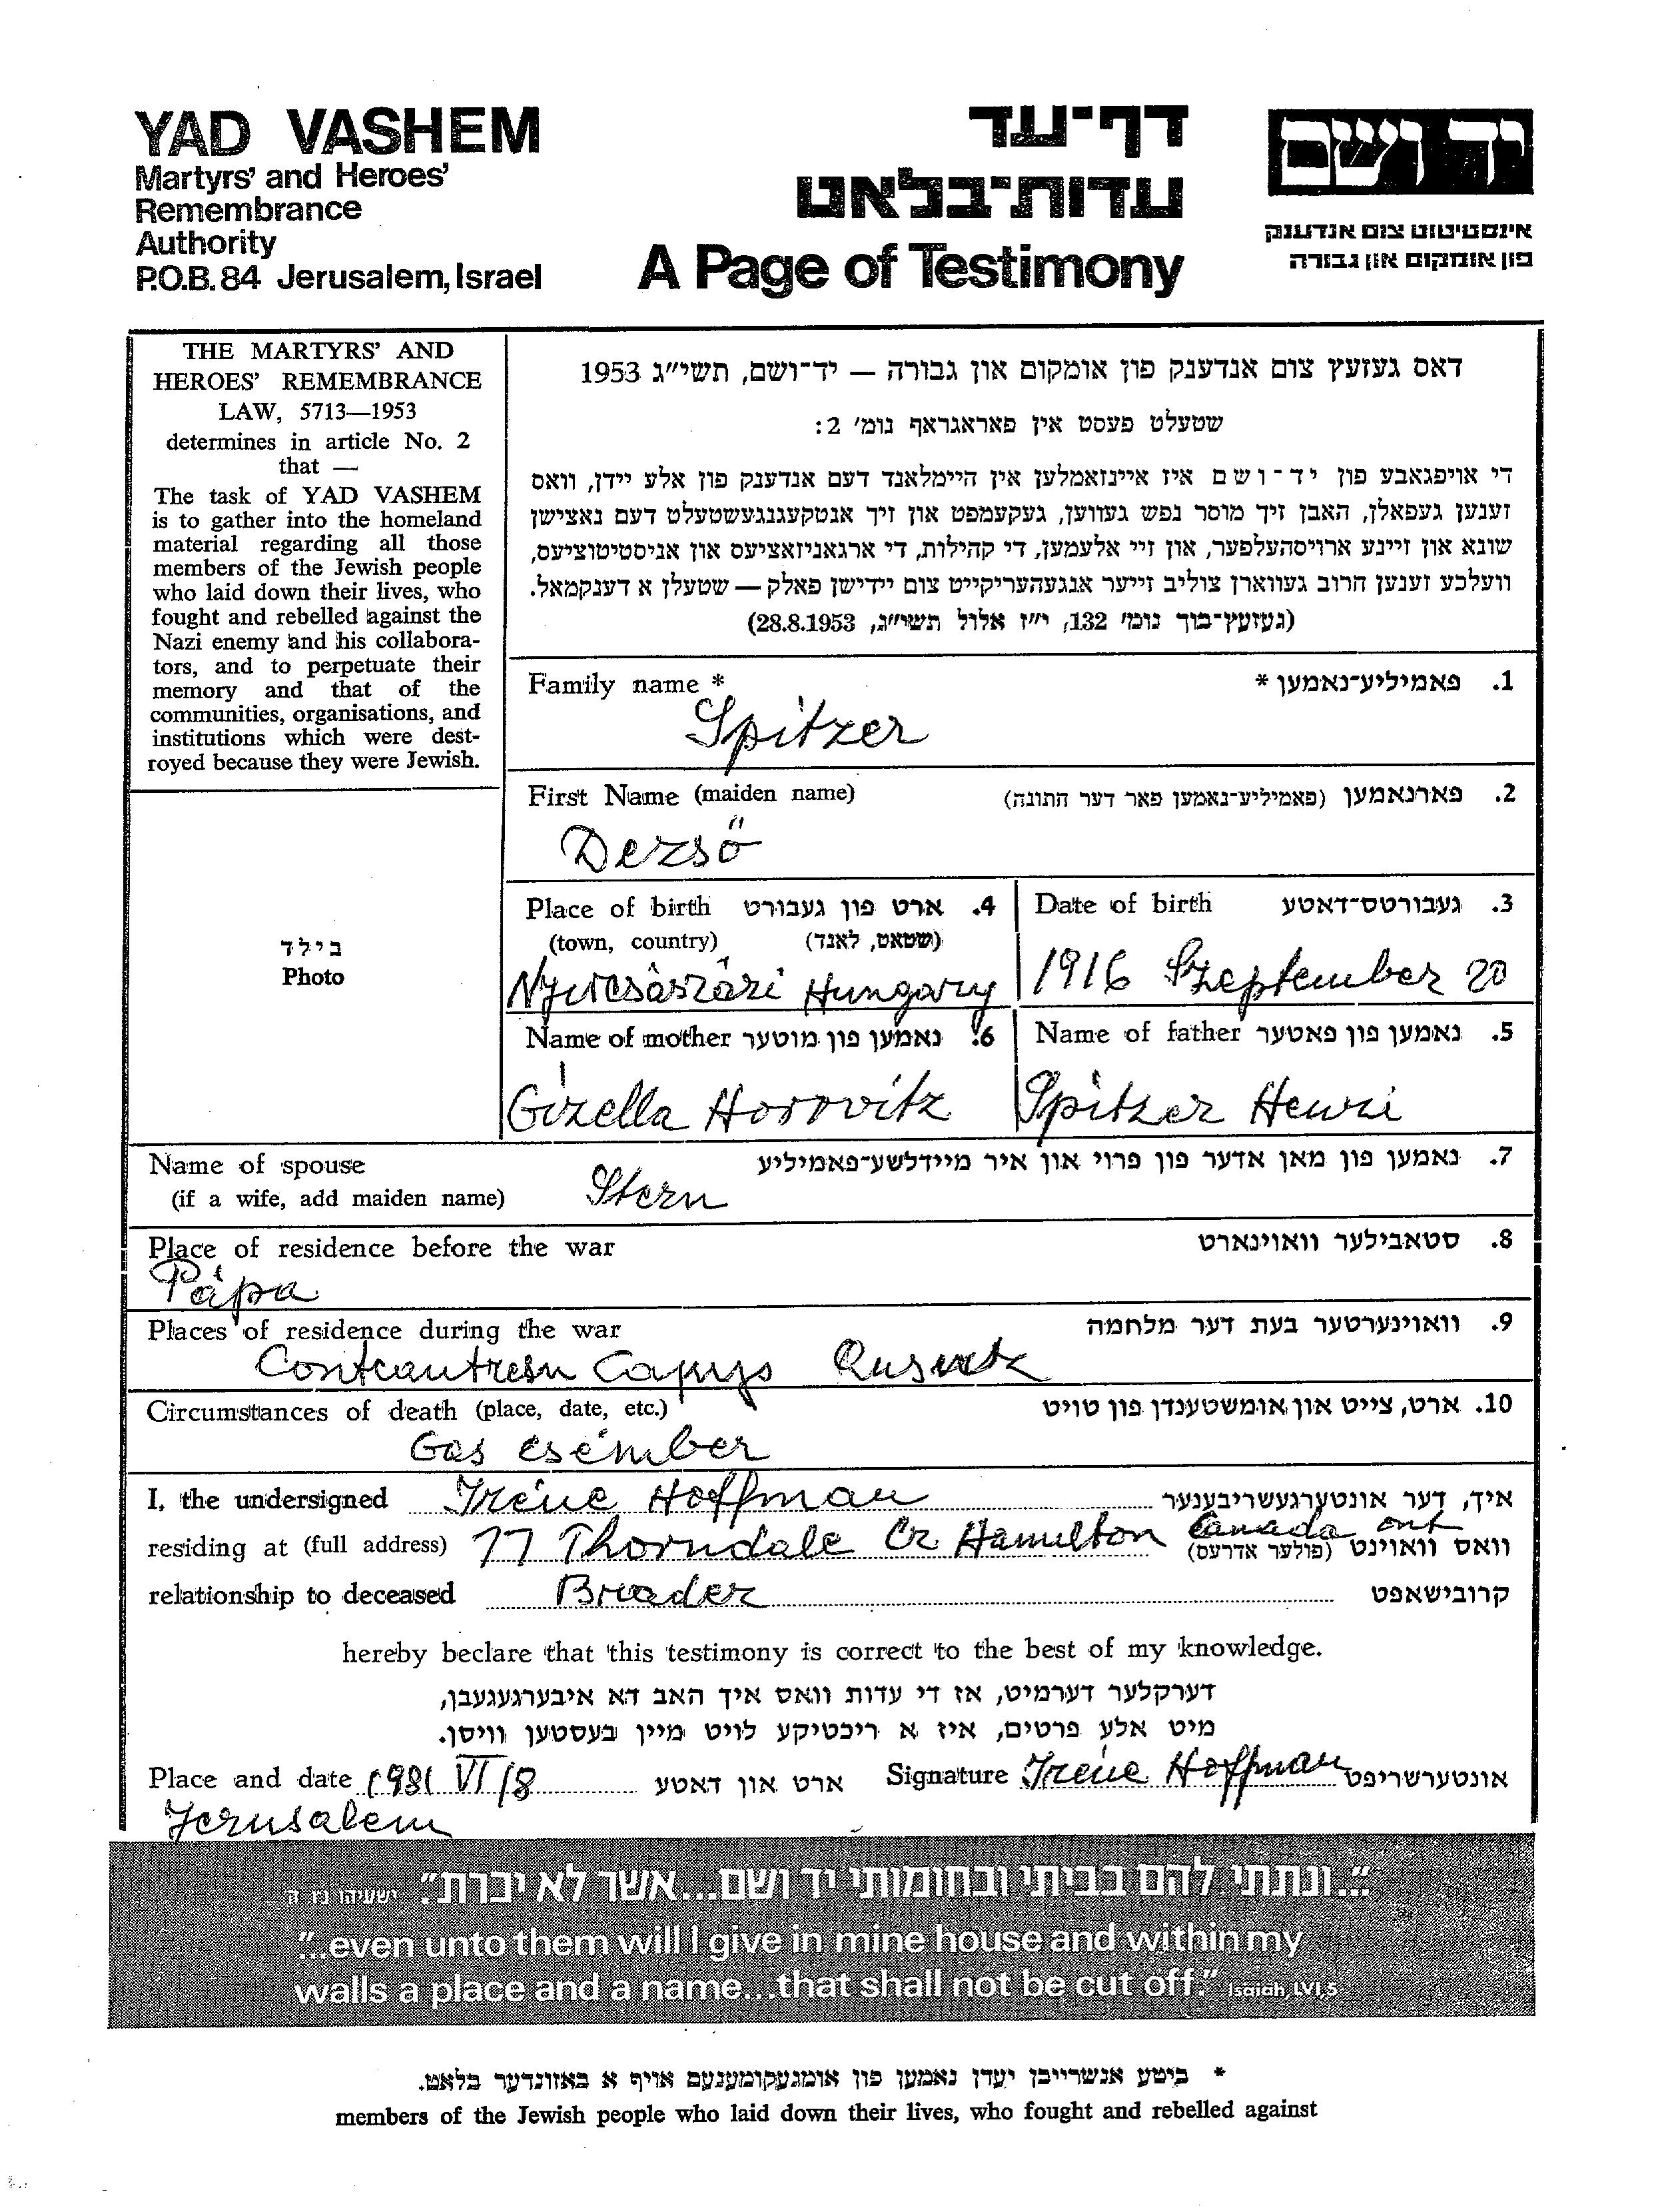 YAD VASHEM
Martyrs' and Heroes'
Remembrance
Authority
P.O.B. 84 Jerusalem, Israel
דף־עד
עדות־בלאט
A Page of Testimony
יד ושם
אינסטיטוט צום אנדענק
פון אומקום און גבורה
THE MARTYRS' AND
HEROES' REMEMBRANCE
LAW, 5713—1953
determines in article No. 2
that —
The task of YAD VASHEM
is to gather into the homeland
material regarding all those
members of the Jewish people
who laid down their lives, who
fought and rebelled against the
Nazi enemy and his collabora-
tors, and to perpetuate their
memory and that of the
communities, organisations, and
institutions which were dest-
royed because they were Jewish.
דאס געזעץ צום אנדענק פון אומקום און גבורה — יד־ושם, תשי"ג 1953
שטעלט פעסט אין פאראגראף נומ' 2:
די אויפגאבע פון יד־ושם איז איינזאמלען אין היימלאנד דעם אנדענק פון אלע יידן, וואס
זענען געפאלן, האבן זיך מוסר נפש געווען, געקעמפט און זיך אנטקעגנגעשטעלט דעם נאצישן
שונא און זיינע ארויסהעלפער, און זיי אלעמען, די קהילות, די ארגאניזאציעס און אינסטיטוציעס,
וועלכע זענען חרוב געווארן צוליב זייער אנגעהעריקייט צום יידישן פאלק — שטעלן א דענקמאל.
(געזעץ־בוך נומ' 132, י"ז אלול תשי"ג, 28.8.1953)
Family name * 1. פאמיליע־נאמען *
Spitzer
First Name (maiden name) 2. פארנאמען (פאמיליע־נאמען פאר דער חתונה)
Dezsö
Place of birth 4. ארט פון געבורט
(town, country) (שטאט, לאנד)
Hungary
Date of birth 3. געבורטס־דאטע
1916 Szeptember 20
Name of mother 6. נאמען פון מוטער
Gizella Horovitz
Name of father 5. נאמען פון פאטער
Spitzer Henri
בילד
Photo
Name of spouse 7. נאמען פון מאן אדער פון פרוי און איר מיידלשע־פאמיליע
(if a wife, add maiden name) Stern
Place of residence before the war 8. סטאבילער וואוינארט
Pápa
Places of residence during the war 9. וואוינערטער בעת דער מלחמה
Circumstances of death (place, date, etc.) 10. ארט, צייט און אומשטענדן פון טויט
Gas csémber
I, the undersigned Iréne Hoffman איך, דער אונטערגעשריבענער
residing at (full address) 77 Thorndale Cr Hamelton Canada ont וואס וואוינט (פולער אדרעס)
relationship to deceased Brader קרובישאפט
hereby beclare that this testimony is correct to the best of my knowledge.
דערקלער דערמיט, אז די עדות וואס איך האב דא איבערגעגעבן,
מיט אלע פרטים, איז א ריכטיקע לויט מיין בעסטען וויסן.
Place and date 1981 VI/8 ארט און דאטע Signature Iréne Hoffman אונטערשריפט
Jerusalem
"...ונתתי להם בביתי ובחומותי יד ושם...אשר לא יכרת." ישעיהו נ"ו ה'
"...even unto them will I give in mine house and within my
walls a place and a name...that shall not be cut off." Isaiah, LVI,5
* ביטע אנשרייבן יעדן נאמען פון אומגעקומענעם אויף א באזונדער בלאט.
members of the Jewish people who laid down their lives, who fought and rebelled against